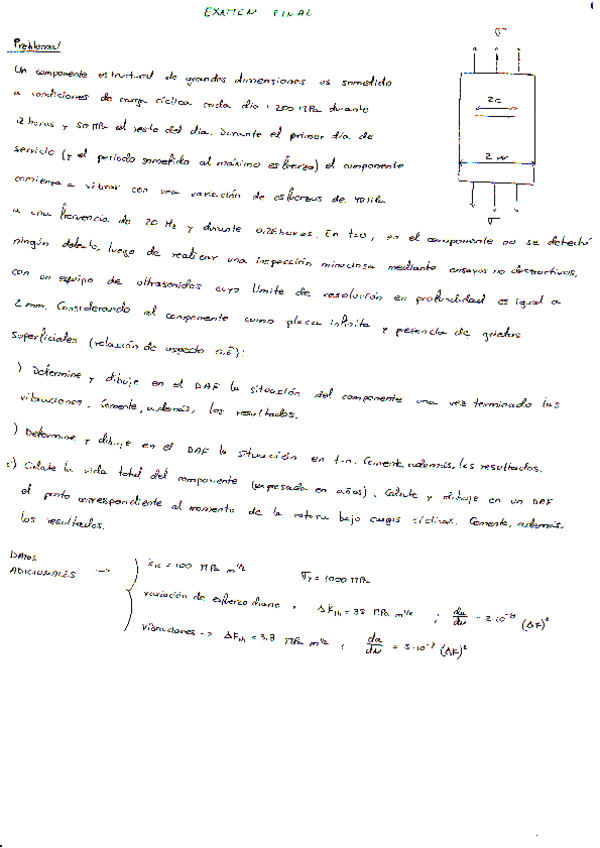 EXAMEN FINAL
Problema 1
Un componente estructural de grandes dimensiones es sometido
a condiciones de carga cíclica cada día: 250 MPa durante
12 horas y 50 MPa el resto del día. Durante el primer día de
servicio (y el período sometido al máximo esfuerzo) el componente
comienza a vibrar con una variación de esfuerzos de 40 MPa
a una frecuencia de 20 Hz y durante horas. En t=0, en el componente no se detectó
ningún defecto, luego de realizar una inspección minuciosa mediante ensayos no destructivos,
con un equipo de ultrasonidos cuyo límite de resolución en profundidad es igual a
2 mm. Considerando al componente como placa infinita y presencia de grietas
superficiales (relación de aspecto ):
) Determine y dibuje en el DAF la situación del componente una vez terminado las
vibraciones. Comente, además, los resultados.
) Determine y dibuje en el DAF la situación en . Comente, además, los resultados.
c) Calcule la vida total del componente (expresada en años). Calcule y dibuje en un DAF
el punto correspondiente al momento de la rotura bajo cargas cíclicas. Comente, además,
los resultados.
DATOS
ADICIONALES →
KIC = 100 MPa m^1/2 σy = 1000 MPa
variación de esfuerzo diario ΔKth = MPa m^1/2 ; da/dN = 2·10^-8 (ΔK)^2
vibraciones → ΔKth = 3,8 MPa m^1/2 ; da/dN = (ΔK)^2
σ
2c
2w
σ